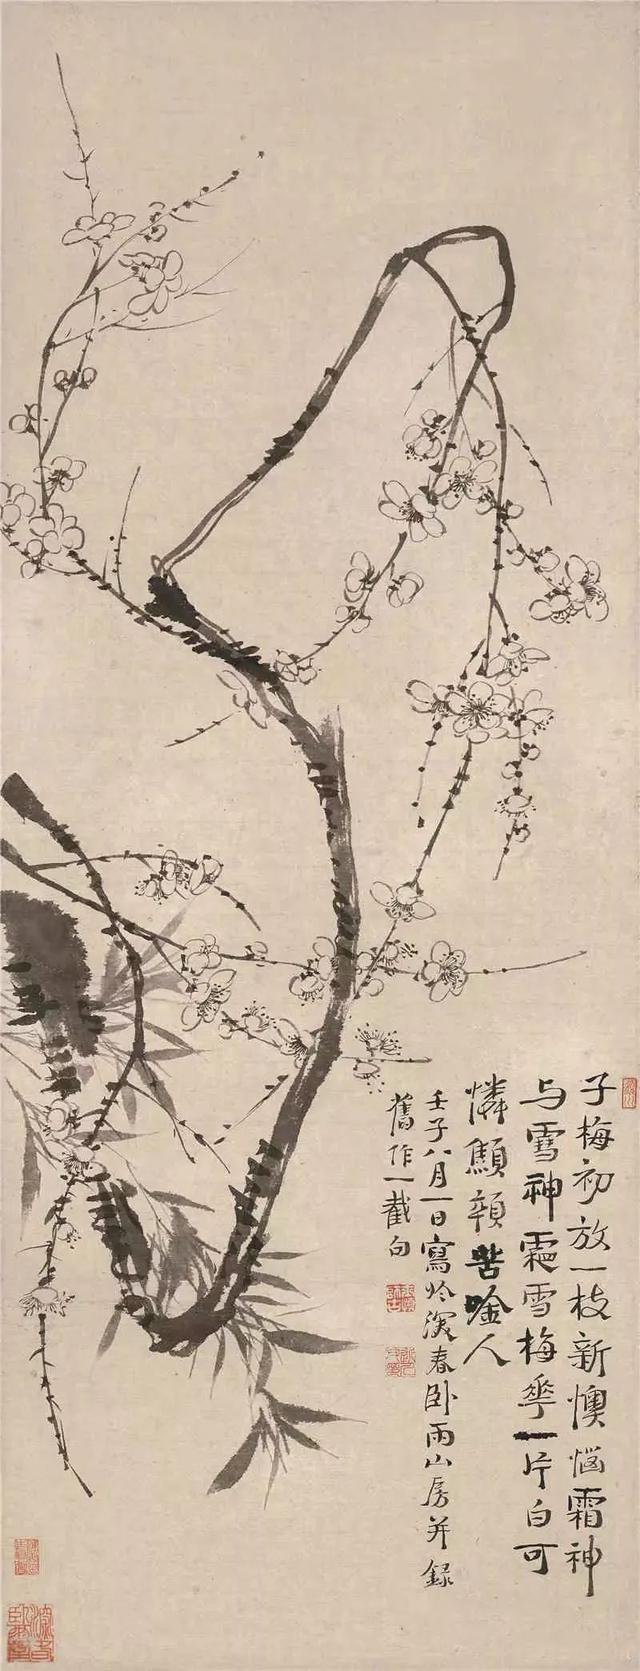 子梅初放一枝新懊惱霜神
与雪神霜雪梅華一片白可
憐苦唫人
壬子八月一日寫於深春卧雨山房并録
舊作一截句